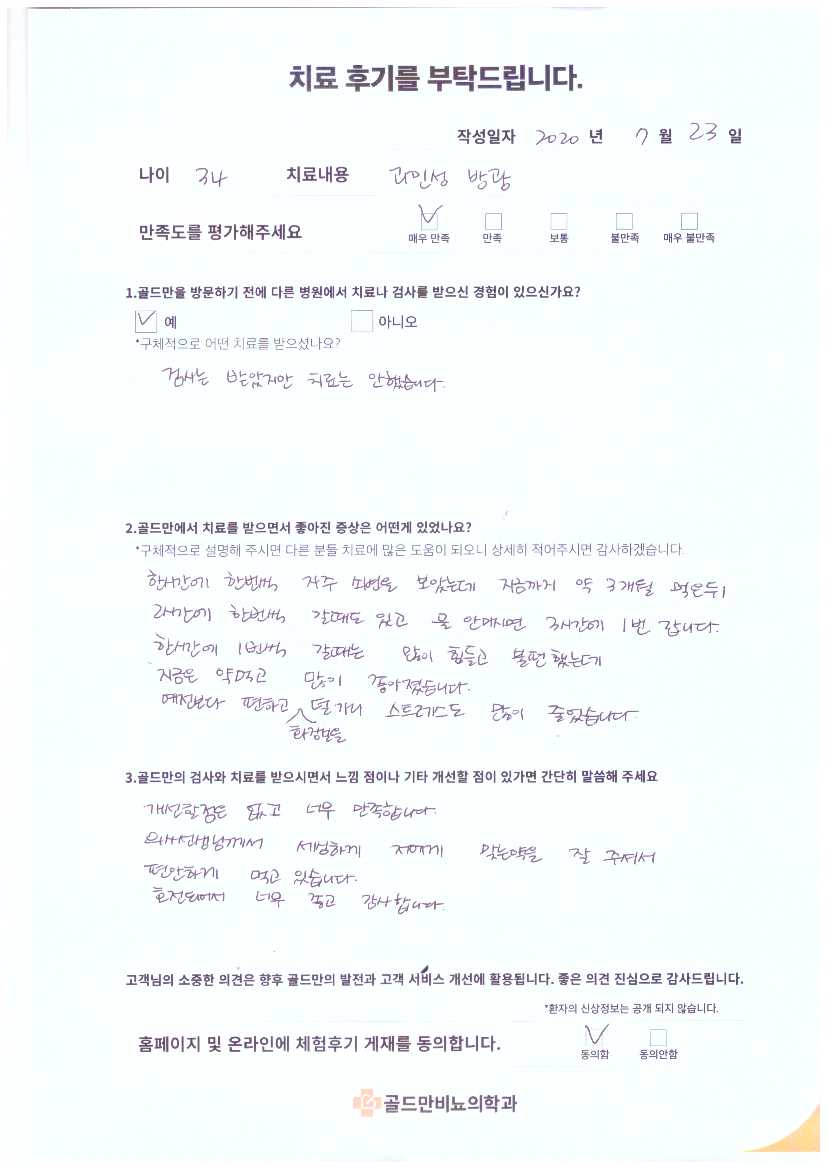 치료 후기를 부탁드립니다.
작성일자 2020 년 7 월 23 일
나이 34 치료내용 과민성 방광
만족도를 평가해주세요 매우 만족 만족 보통 불만족 매우 불만족
1.골드만을 방문하기 전에 다른 병원에서 치료나 검사를 받으신 경험이 있으신가요?
예 아니오
*구체적으로 어떤 치료를 받으셨나요?
검사는 받았지만 치료는 안했습니다.
2.골드만에서 치료를 받으면서 좋아진 증상은 어떤게 있었나요?
*구체적으로 설명해 주시면 다른 분들 치료에 많은 도움이 되오니 상세히 적어주시면 감사하겠습니다.
한시간에 한번씩 자주 소변을 보았는데 지금까지 약 3개월 먹은후
2시간에 한번씩 갈때도 있고 물 안마시면 3시간에 1번 갑니다.
한시간에 1번씩 갈때는 많이 힘들고 불편했는데
지금은 약먹고 많이 좋아졌습니다.
예전보다 편하고 덜 가니 스트레스도 많이 줄었습니다.
화장실을
3.골드만의 검사와 치료를 받으시면서 느낌 점이나 기타 개선할 점이 있가면 간단히 말씀해 주세요
개선할점은 없고 너무 만족합니다.
의사선생님께서 세심하게 저에게 맞는약을 잘 주셔서
편안하게 먹고 있습니다.
호전되어서 너무 좋고 감사합니다.
고객님의 소중한 의견은 향후 골드만의 발전과 고객 서비스 개선에 활용됩니다. 좋은 의견 진심으로 감사드립니다.
*환자의 신상정보는 공개 되지 않습니다.
홈페이지 및 온라인에 체험후기 게재를 동의합니다. 동의함 동의안함
골드만비뇨의학과